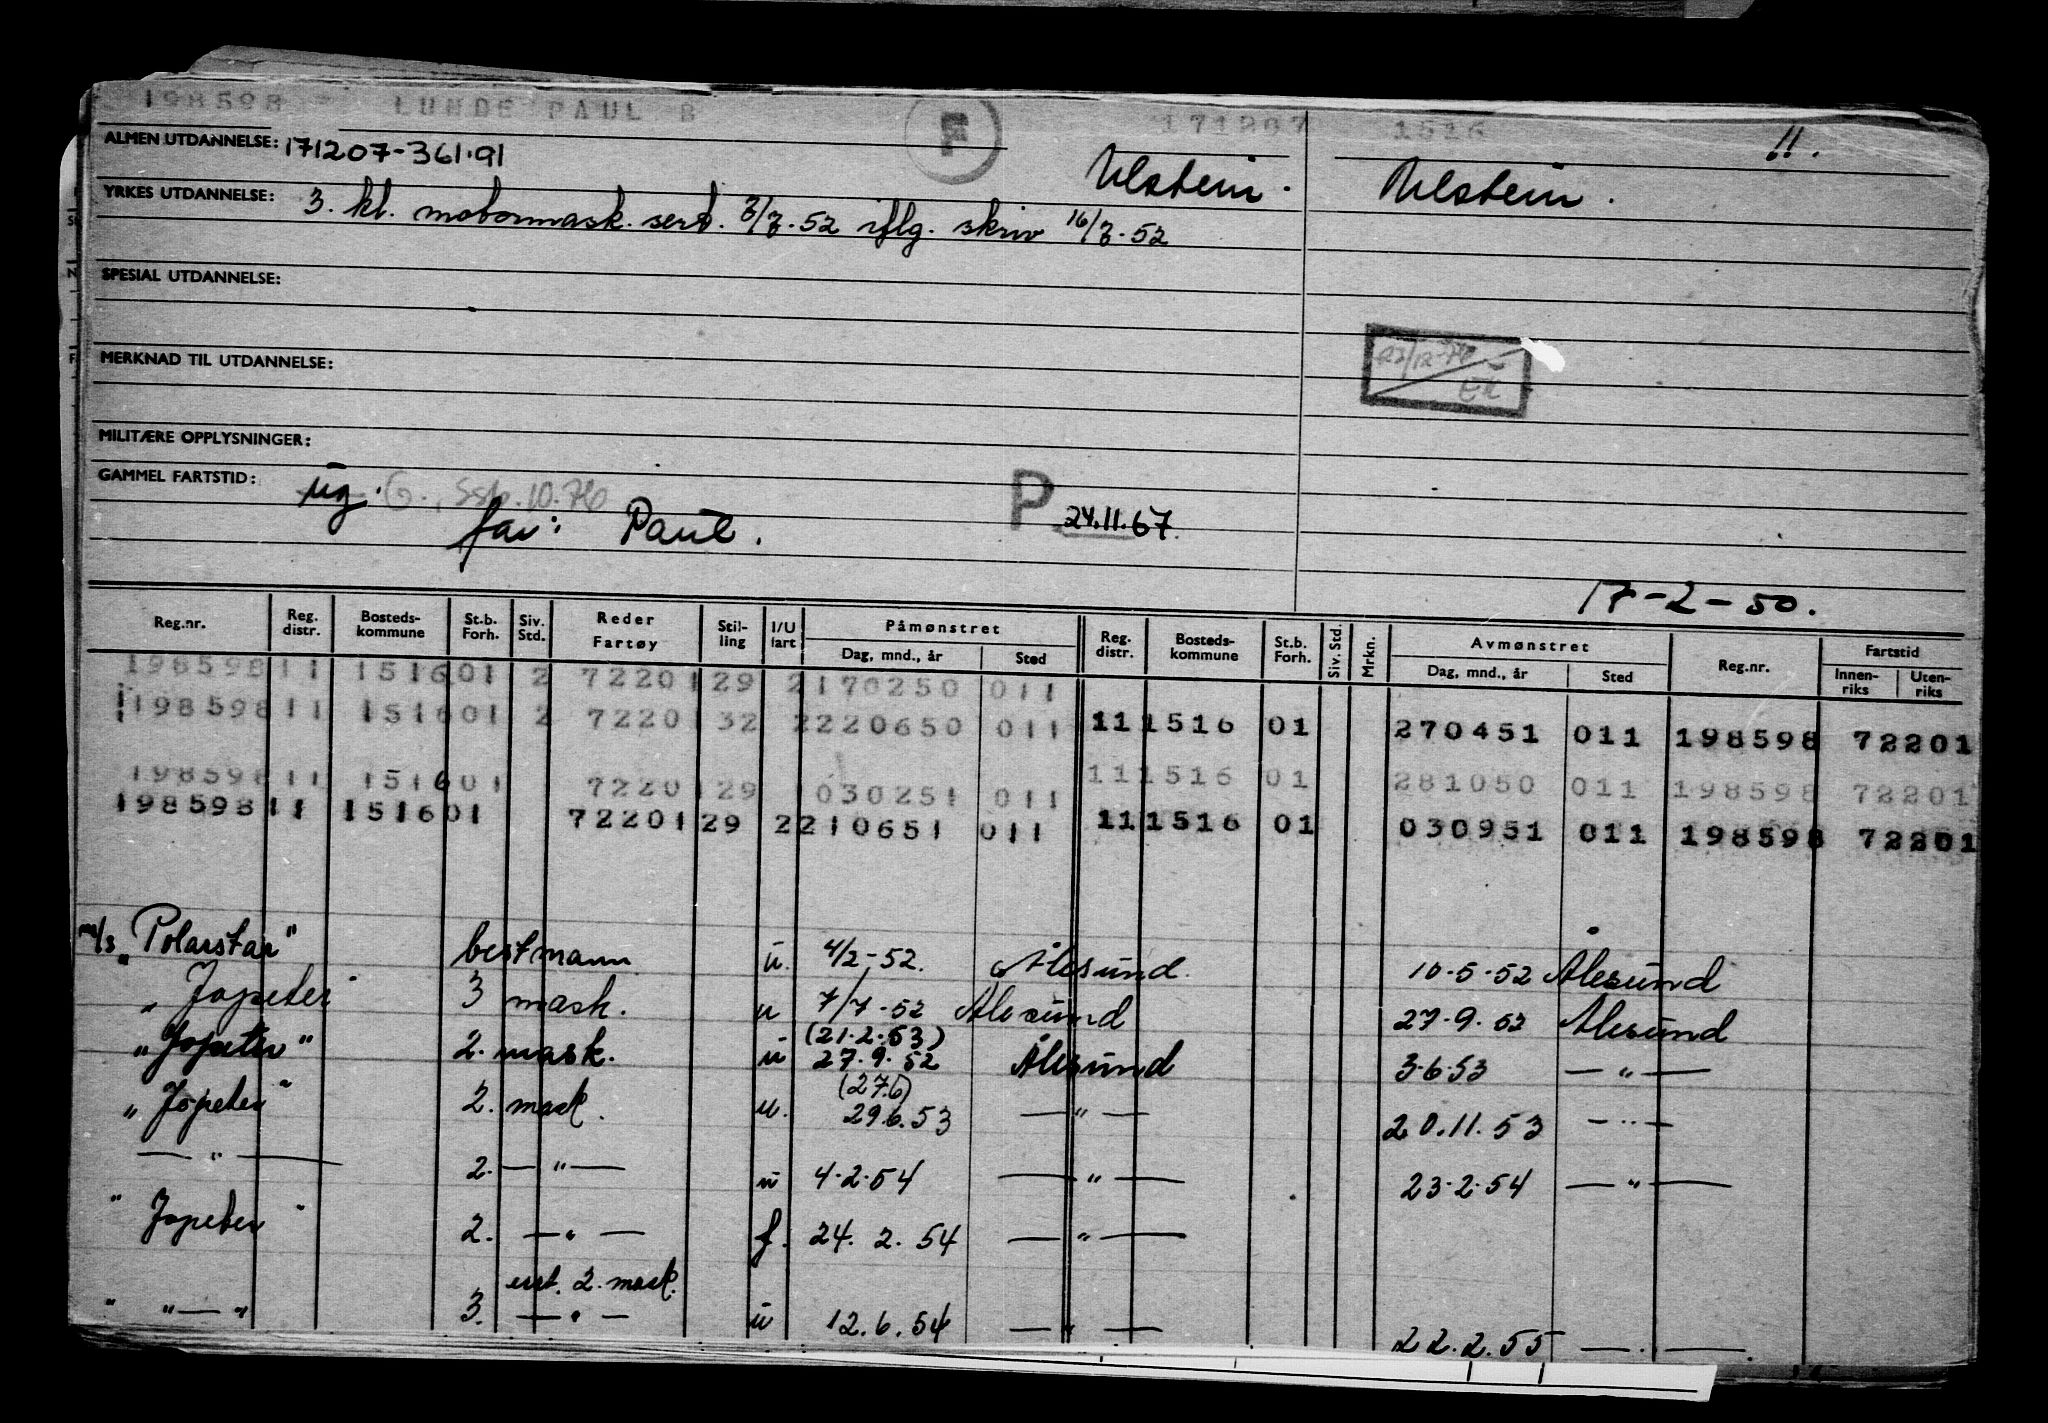 198598 - LUNDE PAUL B F 171207 1516
ALMEN UTDANNELSE: 171207-361.91 11.
YRKES UTDANNELSE: Ulstein. Ulstein.
3. kl. motormask. sert. 3/7.52 iflg. skriv 16/7.52
SPESIAL UTDANNELSE:
MERKNAD TIL UTDANNELSE:
MILITÆRE OPPLYSNINGER:
GAMMEL FARTSTID: ug.
far: Paul. P 24.11.67.
17-2-50.
Reg.nr. Reg. distr. Bosteds-kommune St.b. Forh. Siv. Std. Reder Fartøy Stil-ling I/U fart Påmønstret Dag, mnd., år Sted Reg. distr. Bosteds-kommune St.b. Forh. Siv. Std. Mrkn. Avmønstret Dag, mnd., år Sted Reg.nr. Fartstid Innen-riks Uten-riks
198598 11 1516 01 2 72201 29 2 170250 011
198598 11 1516 01 2 72201 32 2 220650 011 11 1516 01 270451 011 198598 72201
198598 11 1516 01 72201 29 030251 011 11 1516 01 281050 011 198598 72201
198598 11 1516 01 72201 29 2 210651 011 11 1516 01 030951 011 198598 72201
m/s "Polarstar" bestmann u. 4/2-52. Ålesund. 10-5-52 Ålesund
" Jopeter 3 mask. u 7/7-52 Ålesund 27.9.52 Ålesund
(21.2.53)
"Jopeter" 2. mask. u 27.9.52 Ålesund 3.6.53 — " —
(27.6)
"Jopeter" 2. mask. u. 29.6.53 — " — 20.11.53 — " —
— " — 2. — " — u 4.2.54 — " — 23.2.54 — " —
" Jopeter " 2. — " — f. 24.2.54 — " —
2. mask.
" " — " 3. — " — u 12.6.54 — " — 22.2.55 — " —